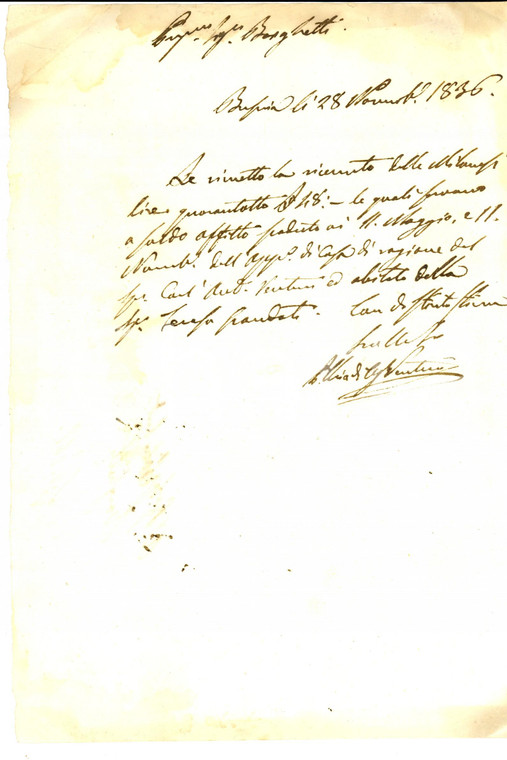 Sig.r Borghetti.
li 28 Novemb.e 1836.
Le rimetto la ricevuta delle Milanesi
lire quarantotto £ 48:- le quali sono
a saldo affitto scaduto ai 11. Maggio, e 11.
Novemb.e dell' App.o di Casa di ragione del
Sig.r Carl' Ant.o Venturi ed abitato dalla
Sig.a Teresa Con distinta stima
Venturi